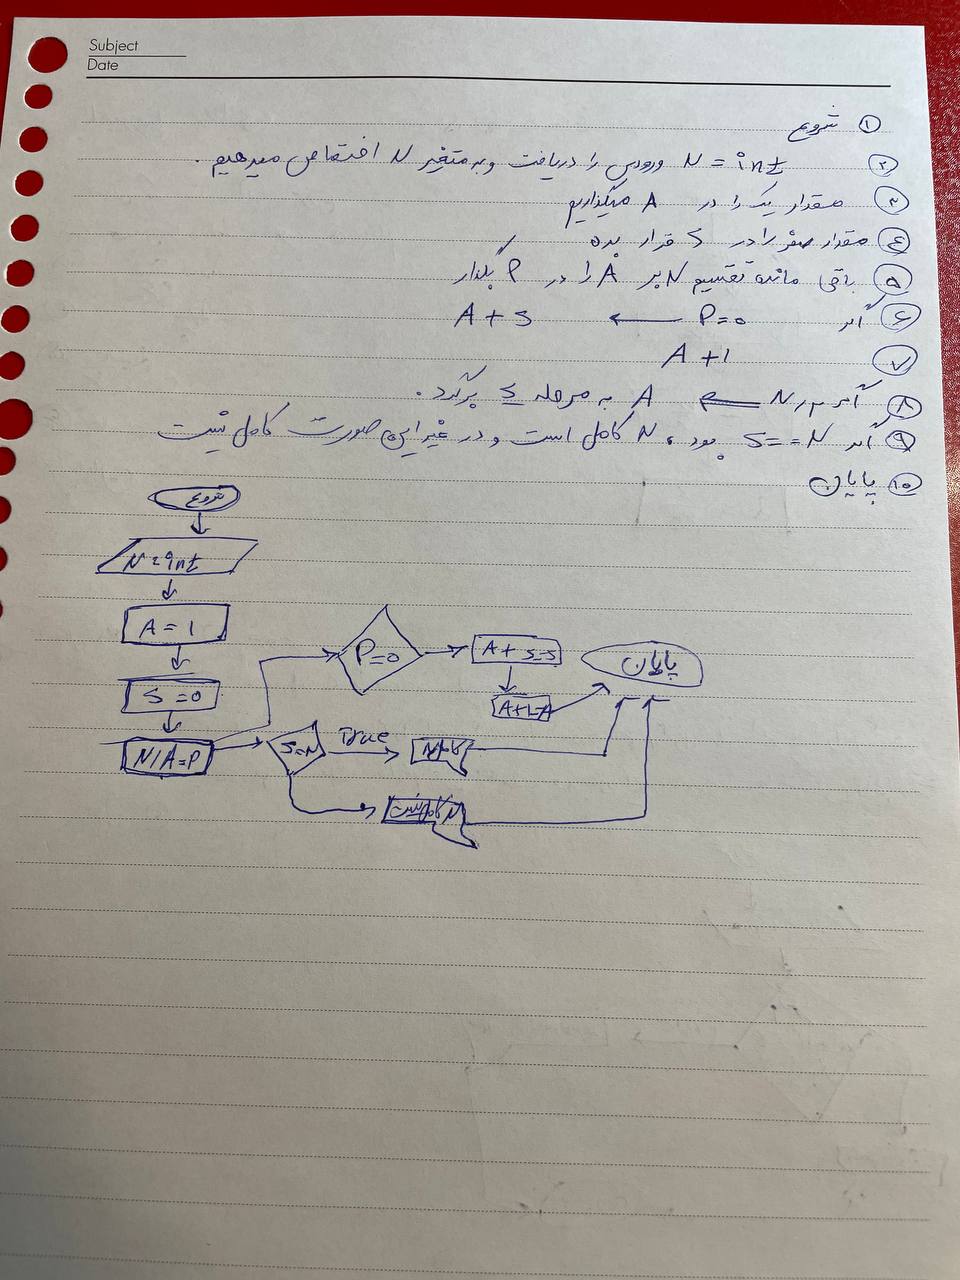 Subject
Date
① شروع
② N = int ورودی را دریافت و به متغیر N اختصاص میدهیم.
③ مقدار یک را در A میگذاریم
④ مقدار صفر را در S قرار بده
⑤ باقی مانده تقسیم N بر A را در P بگذار
⑥ اگر P=0 ← A + S
⑦ A+1
⑧ اگر N ← A به مرحله 5 برگرد.
⑨ اگر S==N بود، N کامل است و در غیر این صورت کامل نیست
⑩ پایان
شروع
N=int
A=1
S=0
N/A=P
P=0
A+S=S
A+1=A
پایان
S=N
True
N کامل
N کامل نیست